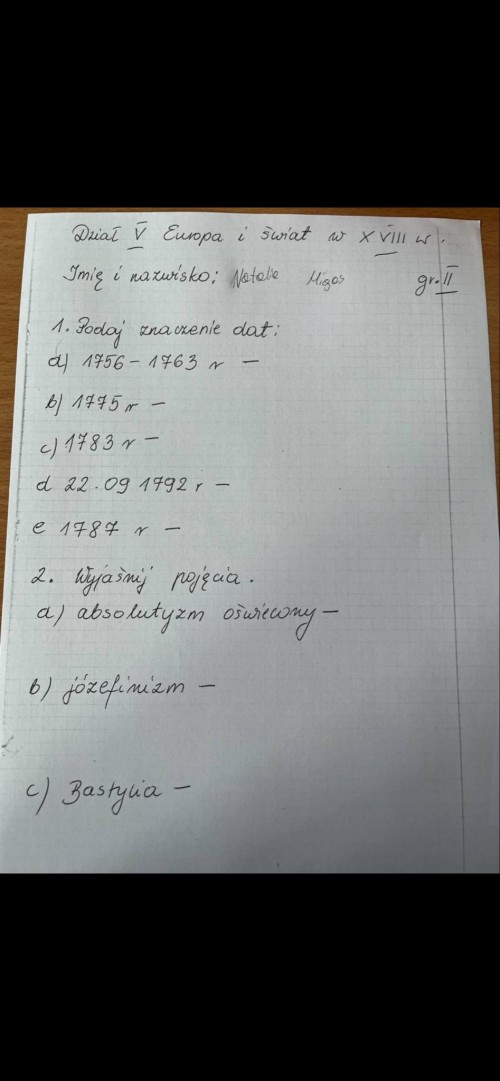 Dział V Europa i świat w XVIII w.
Imię i nazwisko: Natalie Migos gr. II
1. Podaj znaczenie dat:
a) 1756 - 1763 r -
b) 1775 r -
c) 1783 r -
d 22.09 1792 r -
e 1787 r -
2. Wyjaśnij pojęcia.
a) absolutyzm oświecony -
b) józefinizm -
c) Bastylia -